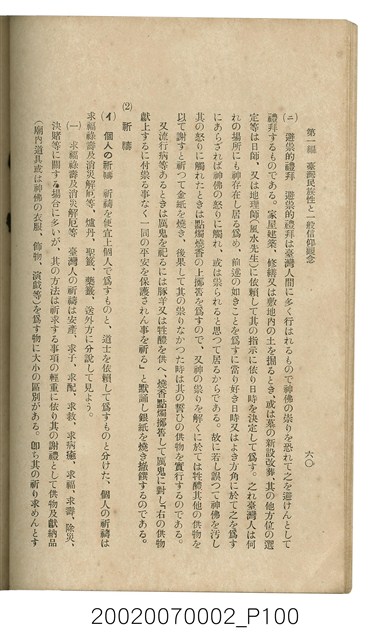 第一編　臺灣民族性と一般信仰觀念
六〇
(ニ)　避祟的禮拜　避祟的禮拜は臺灣人間に多く行はれるもので神佛の祟りを恐れて之を避けんとして
禮拜するものである。家屋建築、修繕又は敷地內の土を掘るとき、或は墓の新設改葬、其の他方位の選
定等は日師、又は地理師(風水先生)に依賴して其の指示に依り日時を決定して爲す。之れ臺灣人は何
れの場所にも神存在し居る爲め、前述の如きことを爲すに當り好き日時又はよき方角に於て之を爲す
にあらざれば神佛の怒りに觸れ、或は祟られると思つて居るからである。故に若し誤つて神佛を汚し
其の怒りに觸れたときは點燭燒香の上擲筶を爲すので、又神の祟りを解くに於ては牲醴其他の供物を
以て謝すと祈つて金紙を燒き、後果して其の祟りなかつた時は其の誓ひの供物を實行するのである。
又流行病等あるときは厲鬼を祀るには豚羊又は牲醴を供へ、燒香點燭擲筶して厲鬼に對し「右の供物
獻上するに付祟る事なく一同の平安を保護されん事を祈る」と默誦し銀紙を燒き撤饌するのである。
(2)　祈　禱
(イ)　個人の祈禱　祈禱を便宜上個人で爲すものと、道士を依賴して爲すものと分けた、個人の祈禱は
求福祿壽及消災解厄等、爐丹、聖籤、藥籤、送外方に分說して見よう。
(一)　求福祿壽及消災解厄等、　臺灣人の祈禱は安產、求子、求配、求救、求病癒、求福、求壽、除災、
決賭等に關する場合に多いが、其の方法は祈求する事項の輕重に依り其の謝禮として供物及獻納品
(廟內道具或は神佛の衣服、飾物、演戲等)を爲す物に大小の區別がある。卽ち其の祈り求めんとす
20020070002_P100